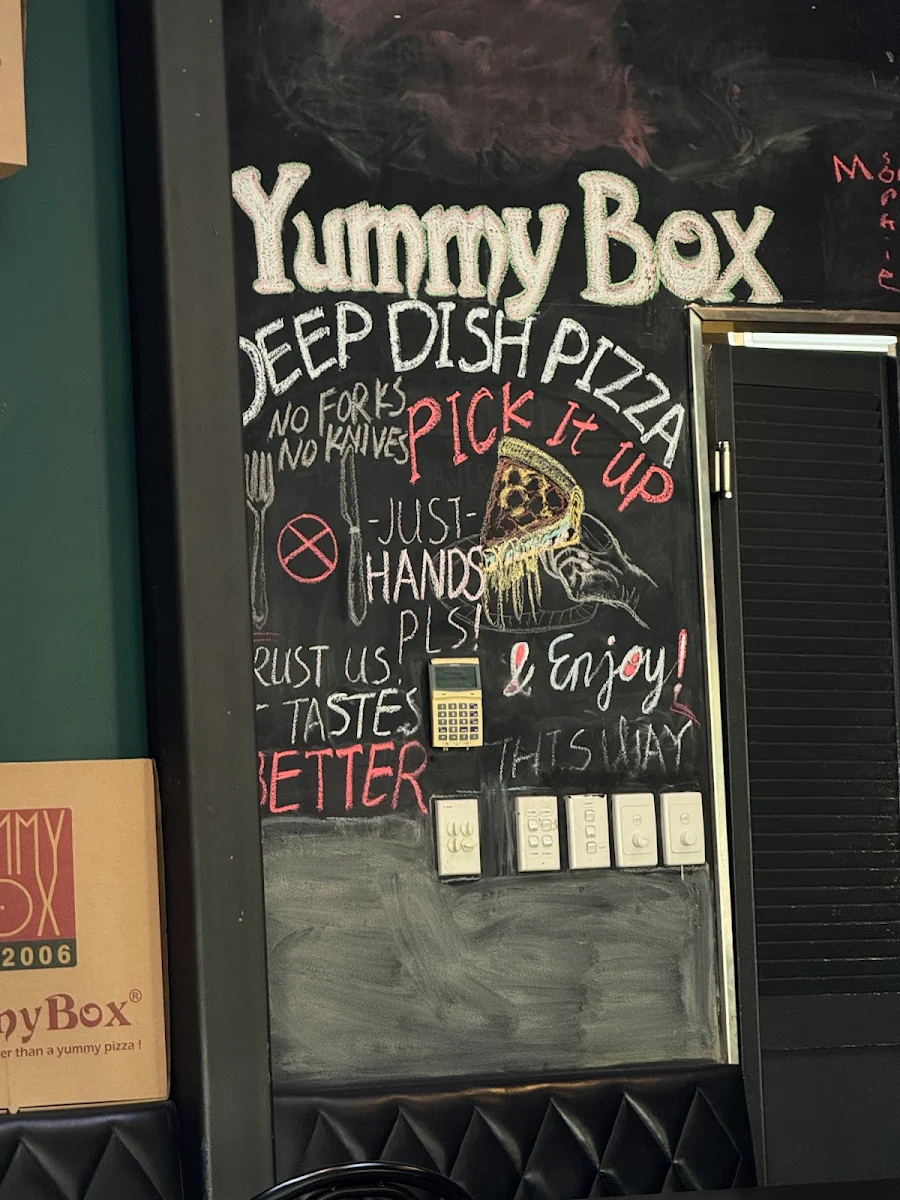 Yummy Box
DEEP DISH PIZZA
NO FORKS
NO KNIVES
PICK It UP
-JUST-
HANDS
PLS!
RUST US!
TASTES
BETTER
& Enjoy!
THIS WAY
MMY
OX
2006
myBox®
er than a yummy pizza !